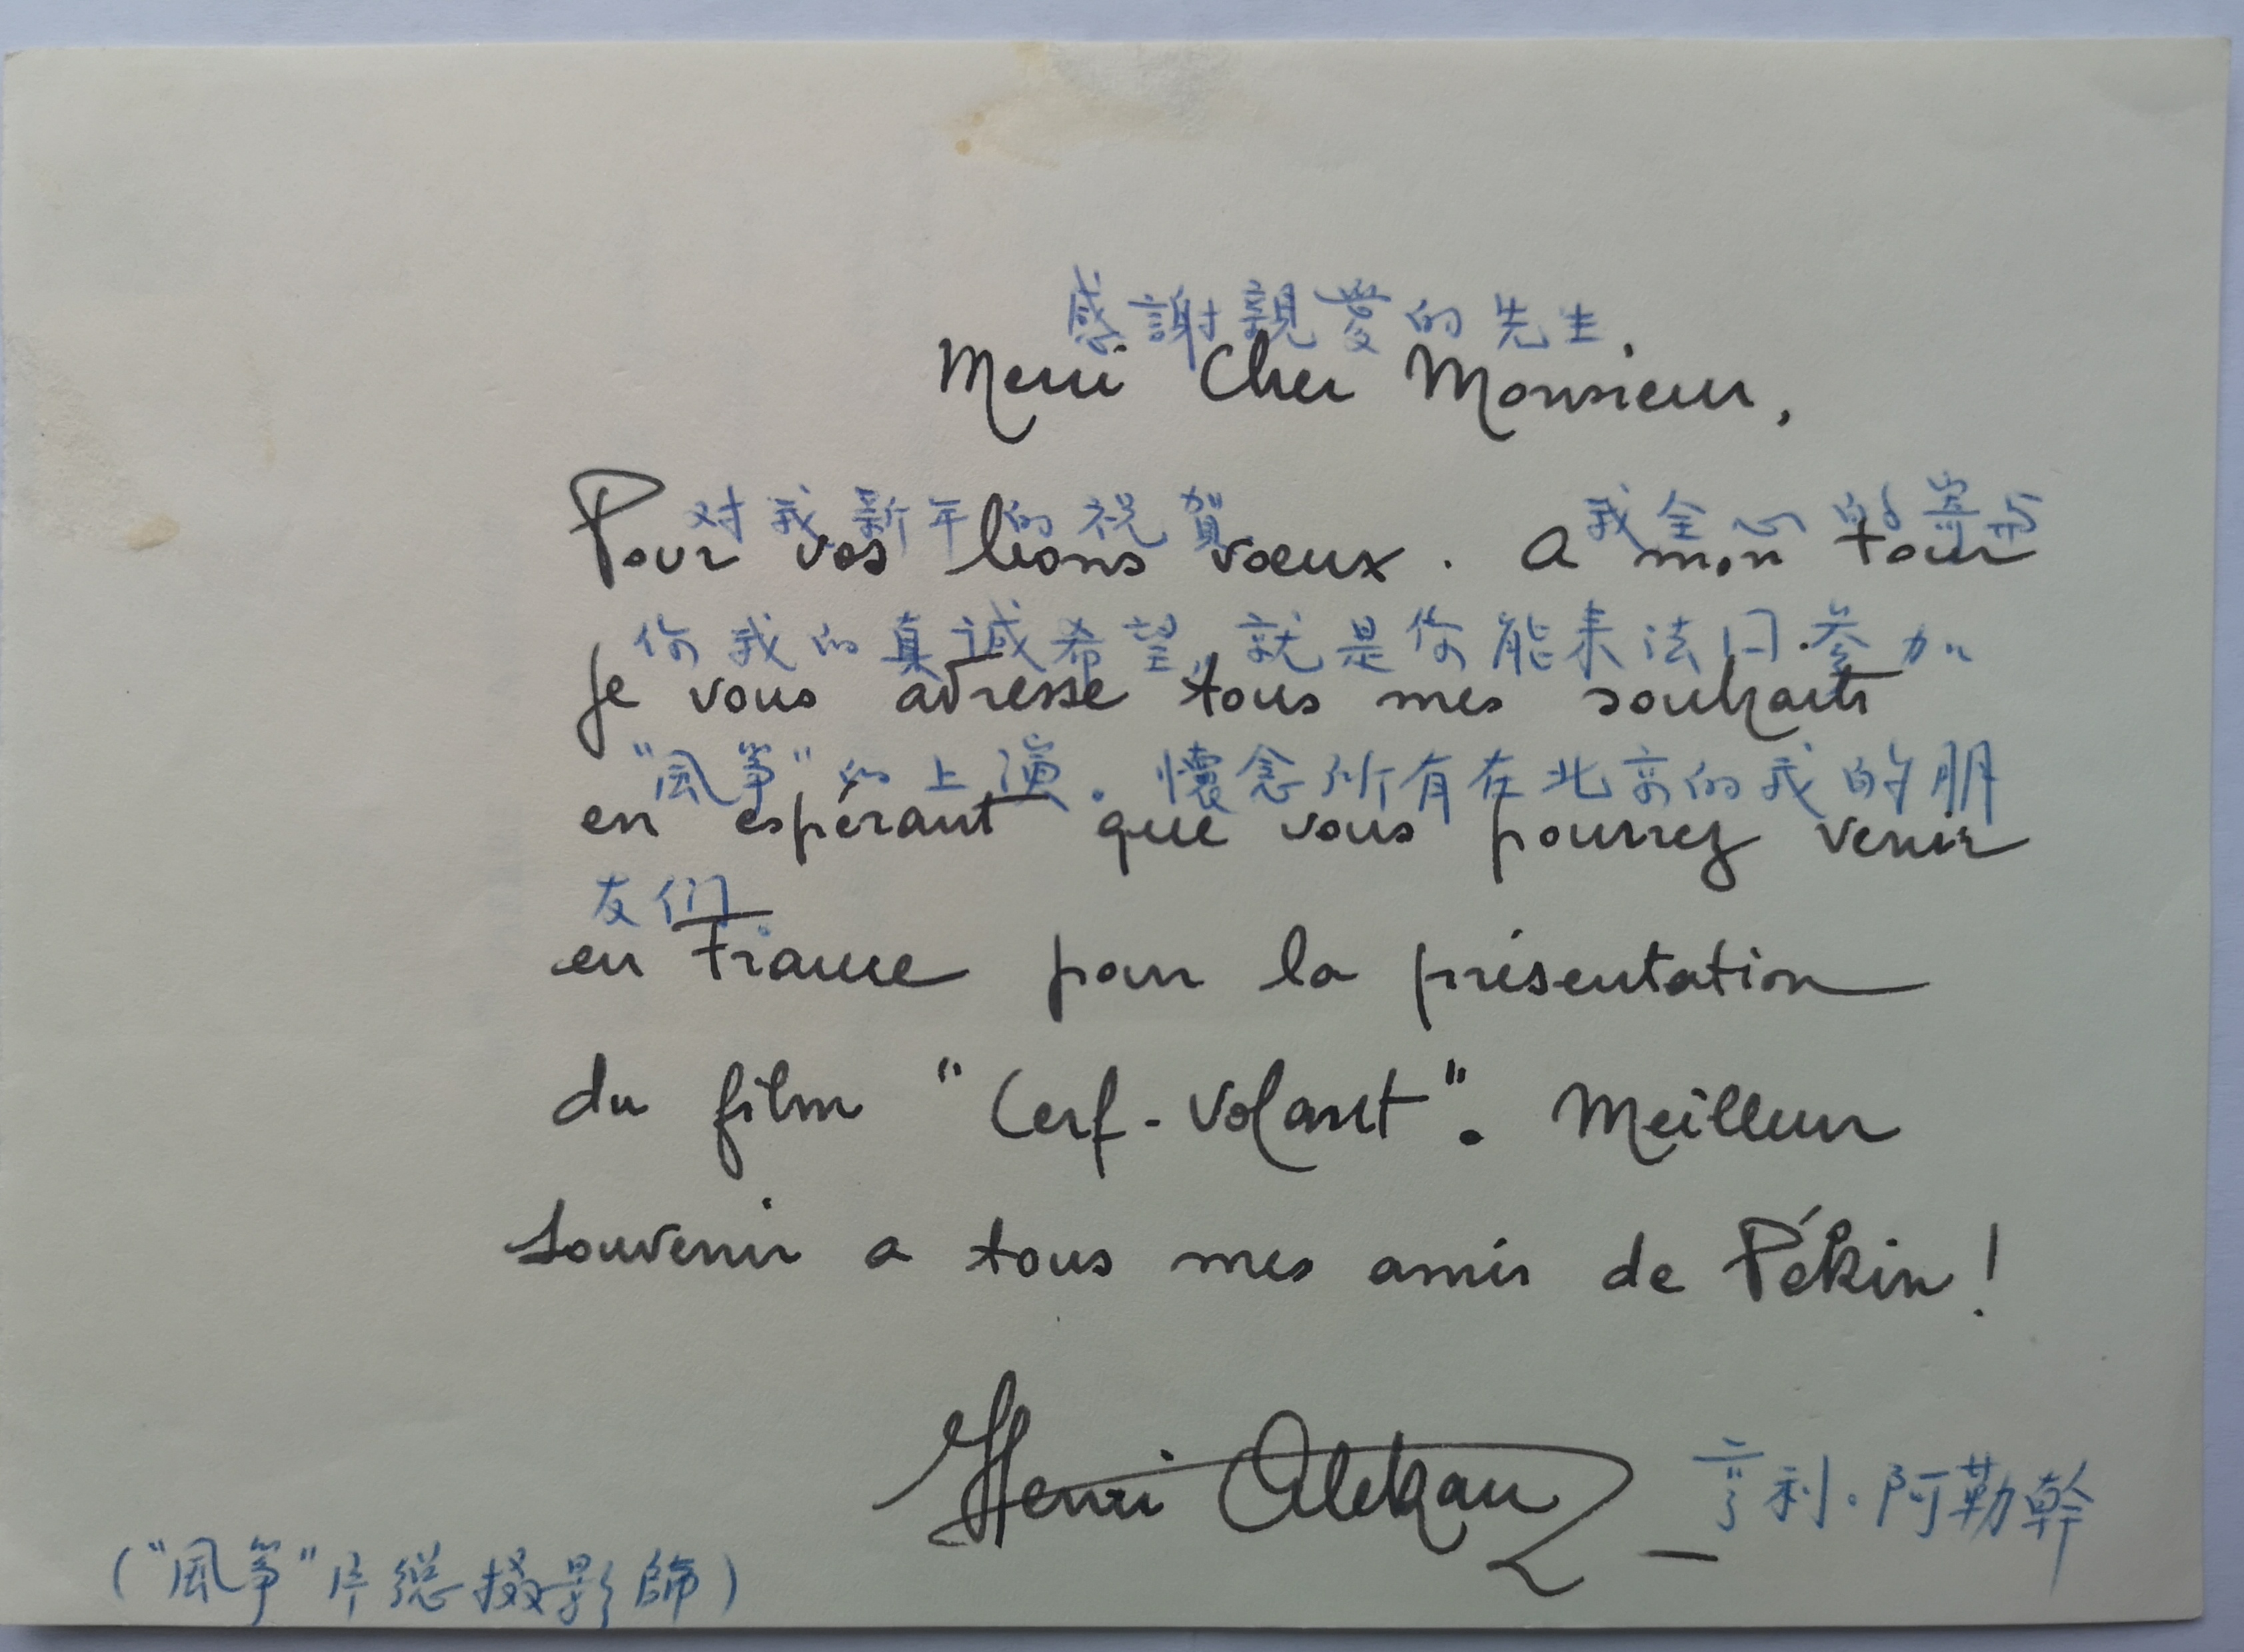 感謝親愛的先生,
Merci Cher Monsieur,
对我新年的祝賀 我全心的寄与
Pour vos bons vœux. A mon tour
你我的真誠希望,就是你能来法囗参加
je vous adresse tous mes souhaits
"風筝"的上演。懷念所有在北京的我的朋
en espérant que vous pourrez venir
友们。
en France pour la présentation
du film "Cerf-volant". Meilleur
souvenir a tous mes amis de Pékin!
Henri Alekan — 亨利·阿勒幹
("風筝"片總摄影師)